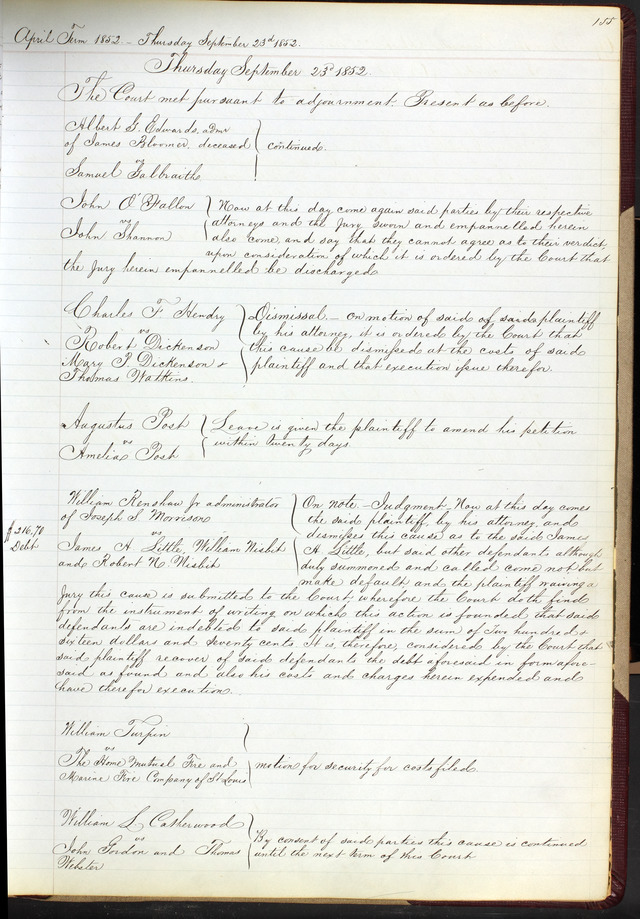 155
April Term 1852. - Thursday September 23d 1852.
Thursday September 23d 1852.
The Court met pursuant to adjournment. Present as before.
Albert G. Edwards, admr
of James Bloomer, deceased
Samuel Galbraith
continued.
John O'Fallon
vs
John Shannon
Now at this day come again said parties by their respective
attorneys and the Jury sworn and empannelled herein
also come and say that they cannot agree as to their verdict,
upon consideration of which it is ordered by the Court that
the Jury herein empannelled be discharged
Charles F. Hendry
vs
Robert Dickenson
Mary P. Dickenson &
Thomas Watkins.
Dismissal. - On motion of said of said plaintiff
by his attorney, it is ordered by the Court that
this cause be dismissed at the costs of said
plaintiff and that execution issue therefor.
Augustus Post
vs
Amelia Post
Leave is given the plaintiff to amend his petition
within twenty days.
$216,70
Debt
William Renshaw Jr administrator
of Joseph S. Morrison
vs
James A. Little, William Nisbit
and Robert N. Nisbit
On note. - Judgment. Now at this day comes
the said plaintiff, by his attorney, and
dismisses this cause as to the said James
A Little, but said other defendants although
duly summoned and called come not but
make default and the plaintiff waiving a
Jury this cause is submitted to the Court, wherefore the Court doth find
from the instrument of writing on which this action is founded that said
defendants are indebted to said plaintiff in the sum of two hundred &
sixteen dollars and seventy cents. It is, therefore, considered by the Court that
said plaintiff recover of said defendants the debt aforesaid in form afore-
said as found and also his costs and charges herein expended and
have therefor execution.
William Turpin
vs
The Home Mutual Fire and
Marine Fire Company of St Louis
motion for security for costs filed.
William L Catherwood
vs
John Gordon and Thomas
Webster
By consent of said parties this cause is continued
until the next term of this Court